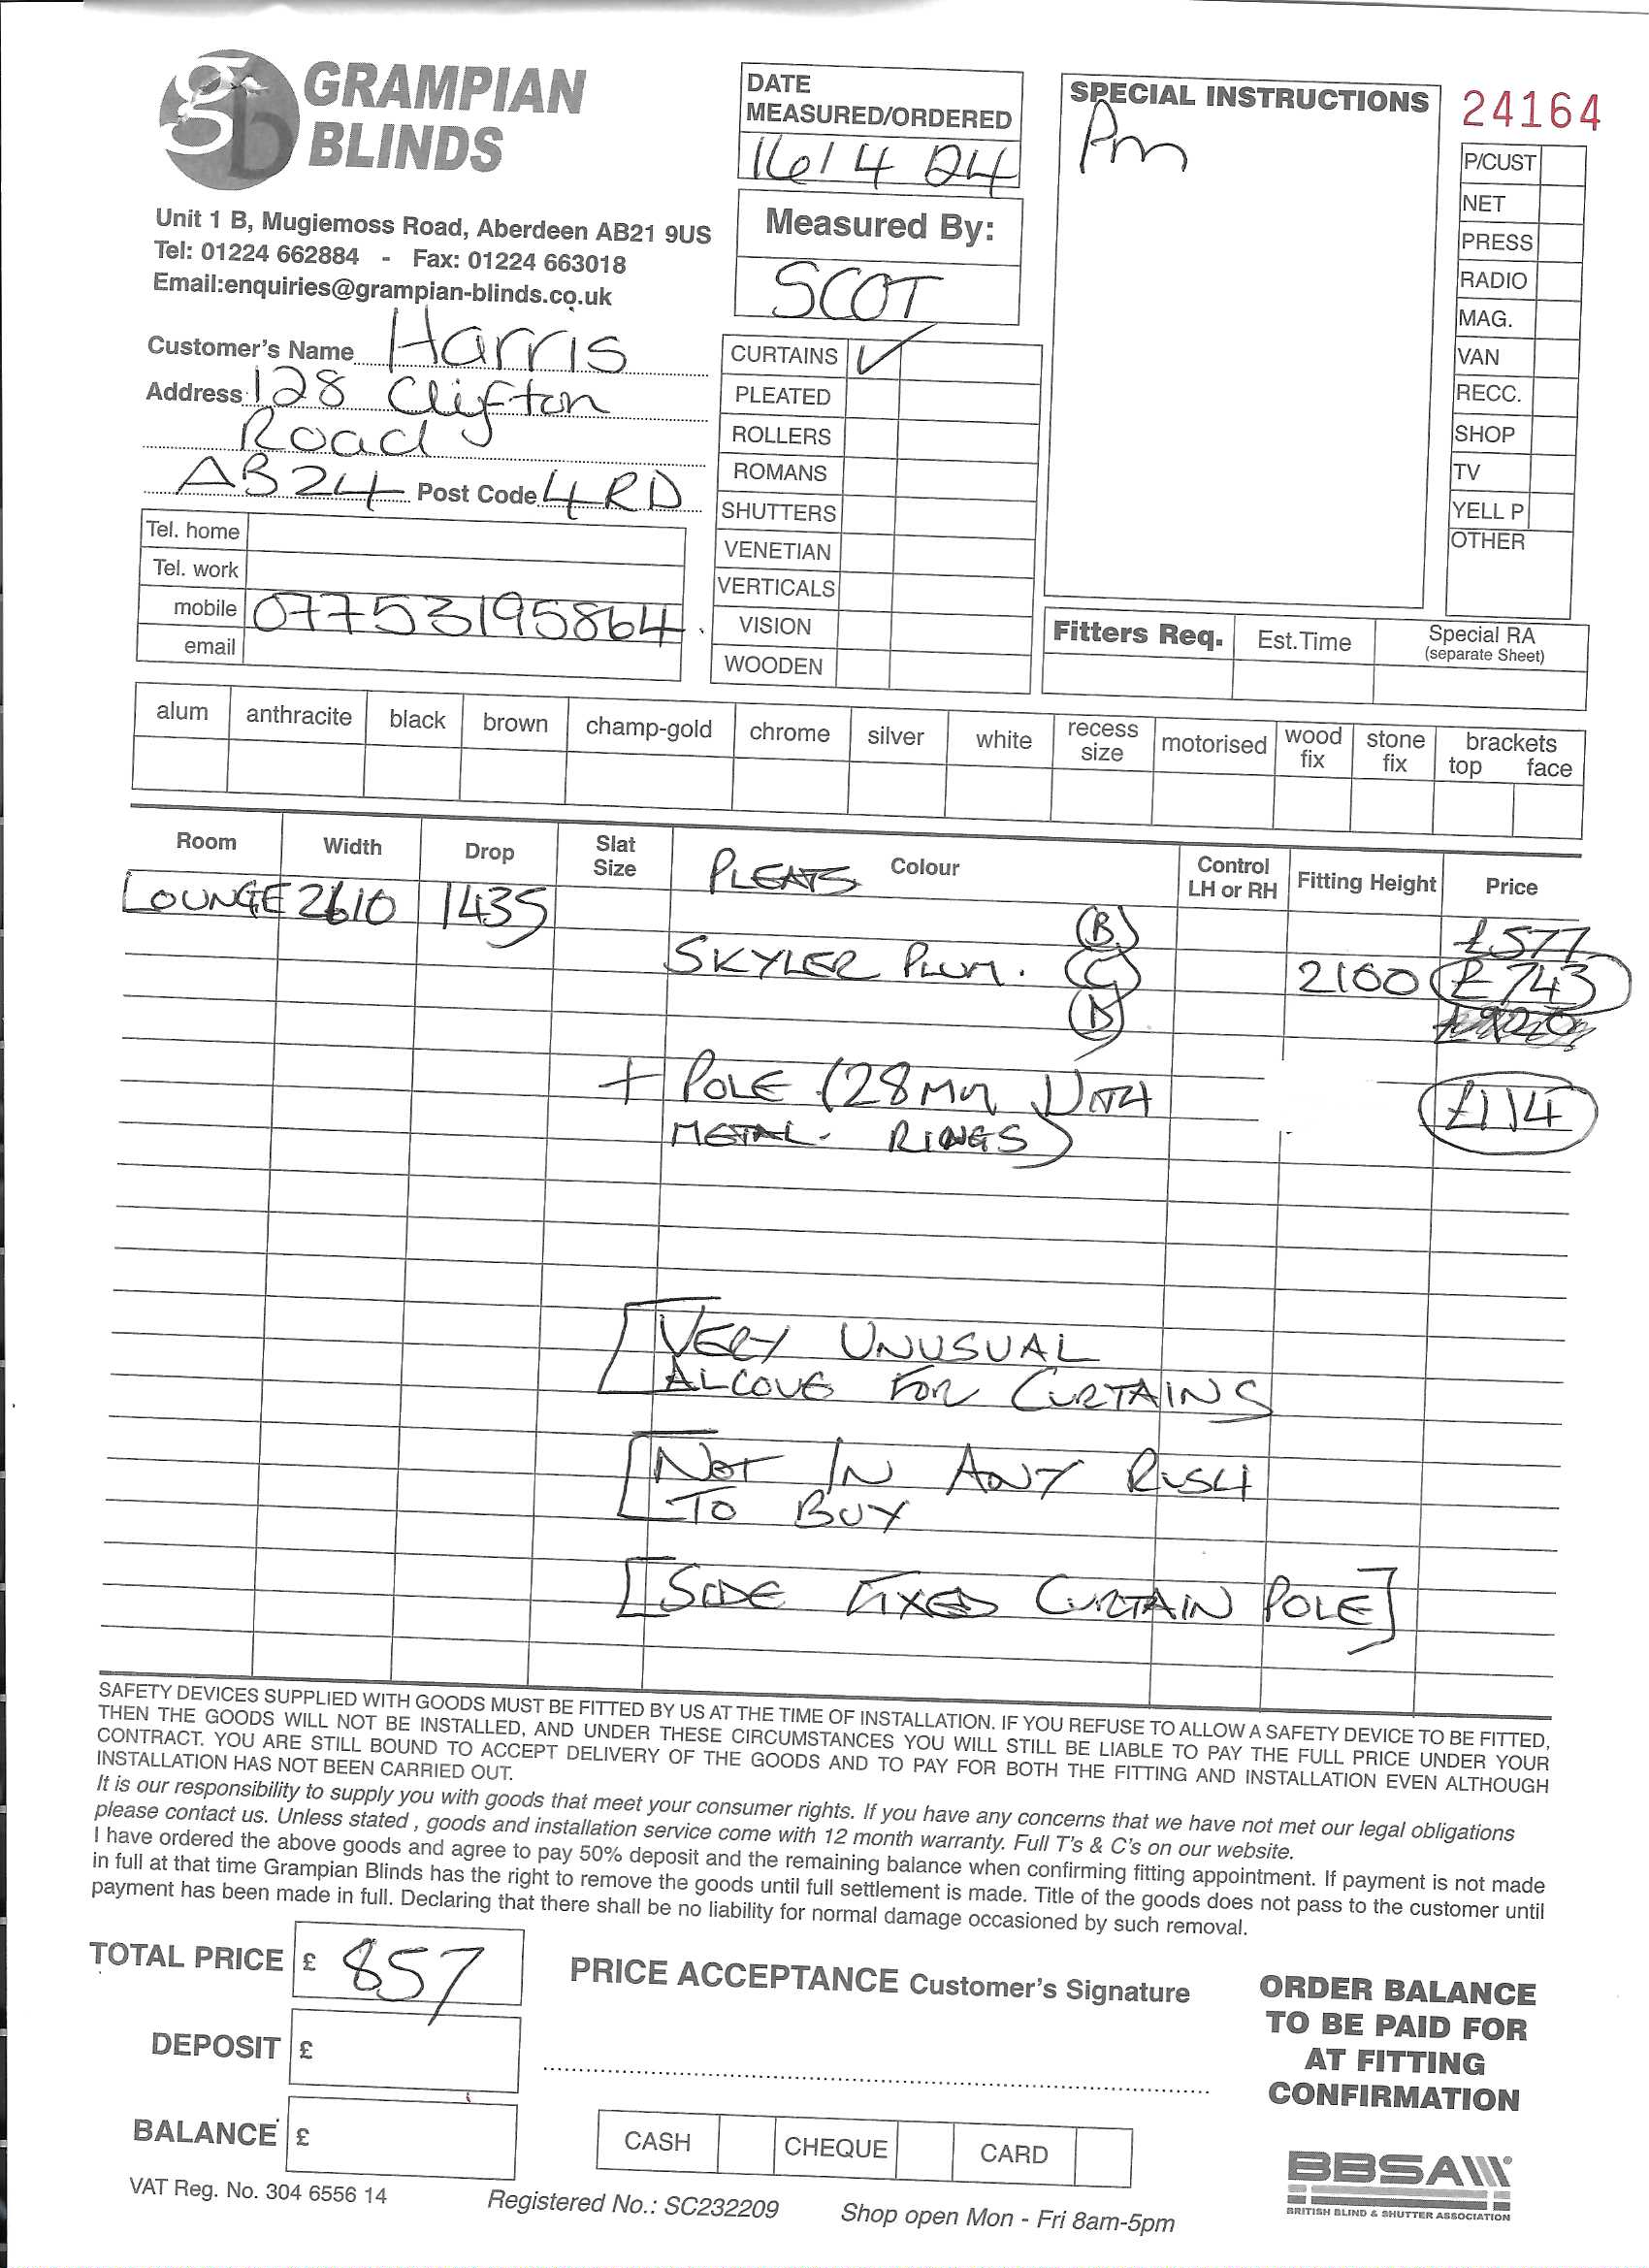 GRAMPIAN
BLINDS
Unit 1 B, Mugiemoss Road, Aberdeen AB21 9US
Tel: 01224 662884 - Fax: 01224 663018
Email:enquiries@grampian-blinds.co.uk
DATE
MEASURED/ORDERED
16/4 24
Measured By:
SCOT
SPECIAL INSTRUCTIONS
Pm
24164
P/CUST
NET
PRESS
RADIO
MAG.
VAN
RECC.
SHOP
TV
YELL P
OTHER
Customer's Name Harris
Address 128 Clifton
Road
AB24 Post Code 4RD
Tel. home
Tel. work
mobile 07753195864
email
CURTAINS ✓
PLEATED
ROLLERS
ROMANS
SHUTTERS
VENETIAN
VERTICALS
VISION
WOODEN
Fitters Req. Est.Time Special RA
(separate Sheet)
alum anthracite black brown champ-gold chrome silver white recess size motorised wood fix stone fix brackets top face
Room Width Drop Slat Size Colour Control LH or RH Fitting Height Price
PLEATS
LOUNGE 2610 1435
(B) £577
SKYLER PLUM. (C) 2100 £743
(D)
+ POLE (28MM WITH £114
METAL. RINGS)
[VERY UNUSUAL
ALCOVE FOR CURTAINS
[NOT IN ANY RUSH
TO BUY
[SIDE FIXED CURTAIN POLE]
SAFETY DEVICES SUPPLIED WITH GOODS MUST BE FITTED BY US AT THE TIME OF INSTALLATION. IF YOU REFUSE TO ALLOW A SAFETY DEVICE TO BE FITTED,
THEN THE GOODS WILL NOT BE INSTALLED, AND UNDER THESE CIRCUMSTANCES YOU WILL STILL BE LIABLE TO PAY THE FULL PRICE UNDER YOUR
CONTRACT. YOU ARE STILL BOUND TO ACCEPT DELIVERY OF THE GOODS AND TO PAY FOR BOTH THE FITTING AND INSTALLATION EVEN ALTHOUGH
INSTALLATION HAS NOT BEEN CARRIED OUT.
It is our responsibility to supply you with goods that meet your consumer rights. If you have any concerns that we have not met our legal obligations
please contact us. Unless stated , goods and installation service come with 12 month warranty. Full T's & C's on our website.
I have ordered the above goods and agree to pay 50% deposit and the remaining balance when confirming fitting appointment. If payment is not made
in full at that time Grampian Blinds has the right to remove the goods until full settlement is made. Title of the goods does not pass to the customer until
payment has been made in full. Declaring that there shall be no liability for normal damage occasioned by such removal.
TOTAL PRICE £ 857
DEPOSIT £
BALANCE £
PRICE ACCEPTANCE Customer's Signature
CASH CHEQUE CARD
ORDER BALANCE
TO BE PAID FOR
AT FITTING
CONFIRMATION
BBSA
BRITISH BLIND & SHUTTER ASSOCIATION
VAT Reg. No. 304 6556 14
Registered No.: SC232209
Shop open Mon - Fri 8am-5pm